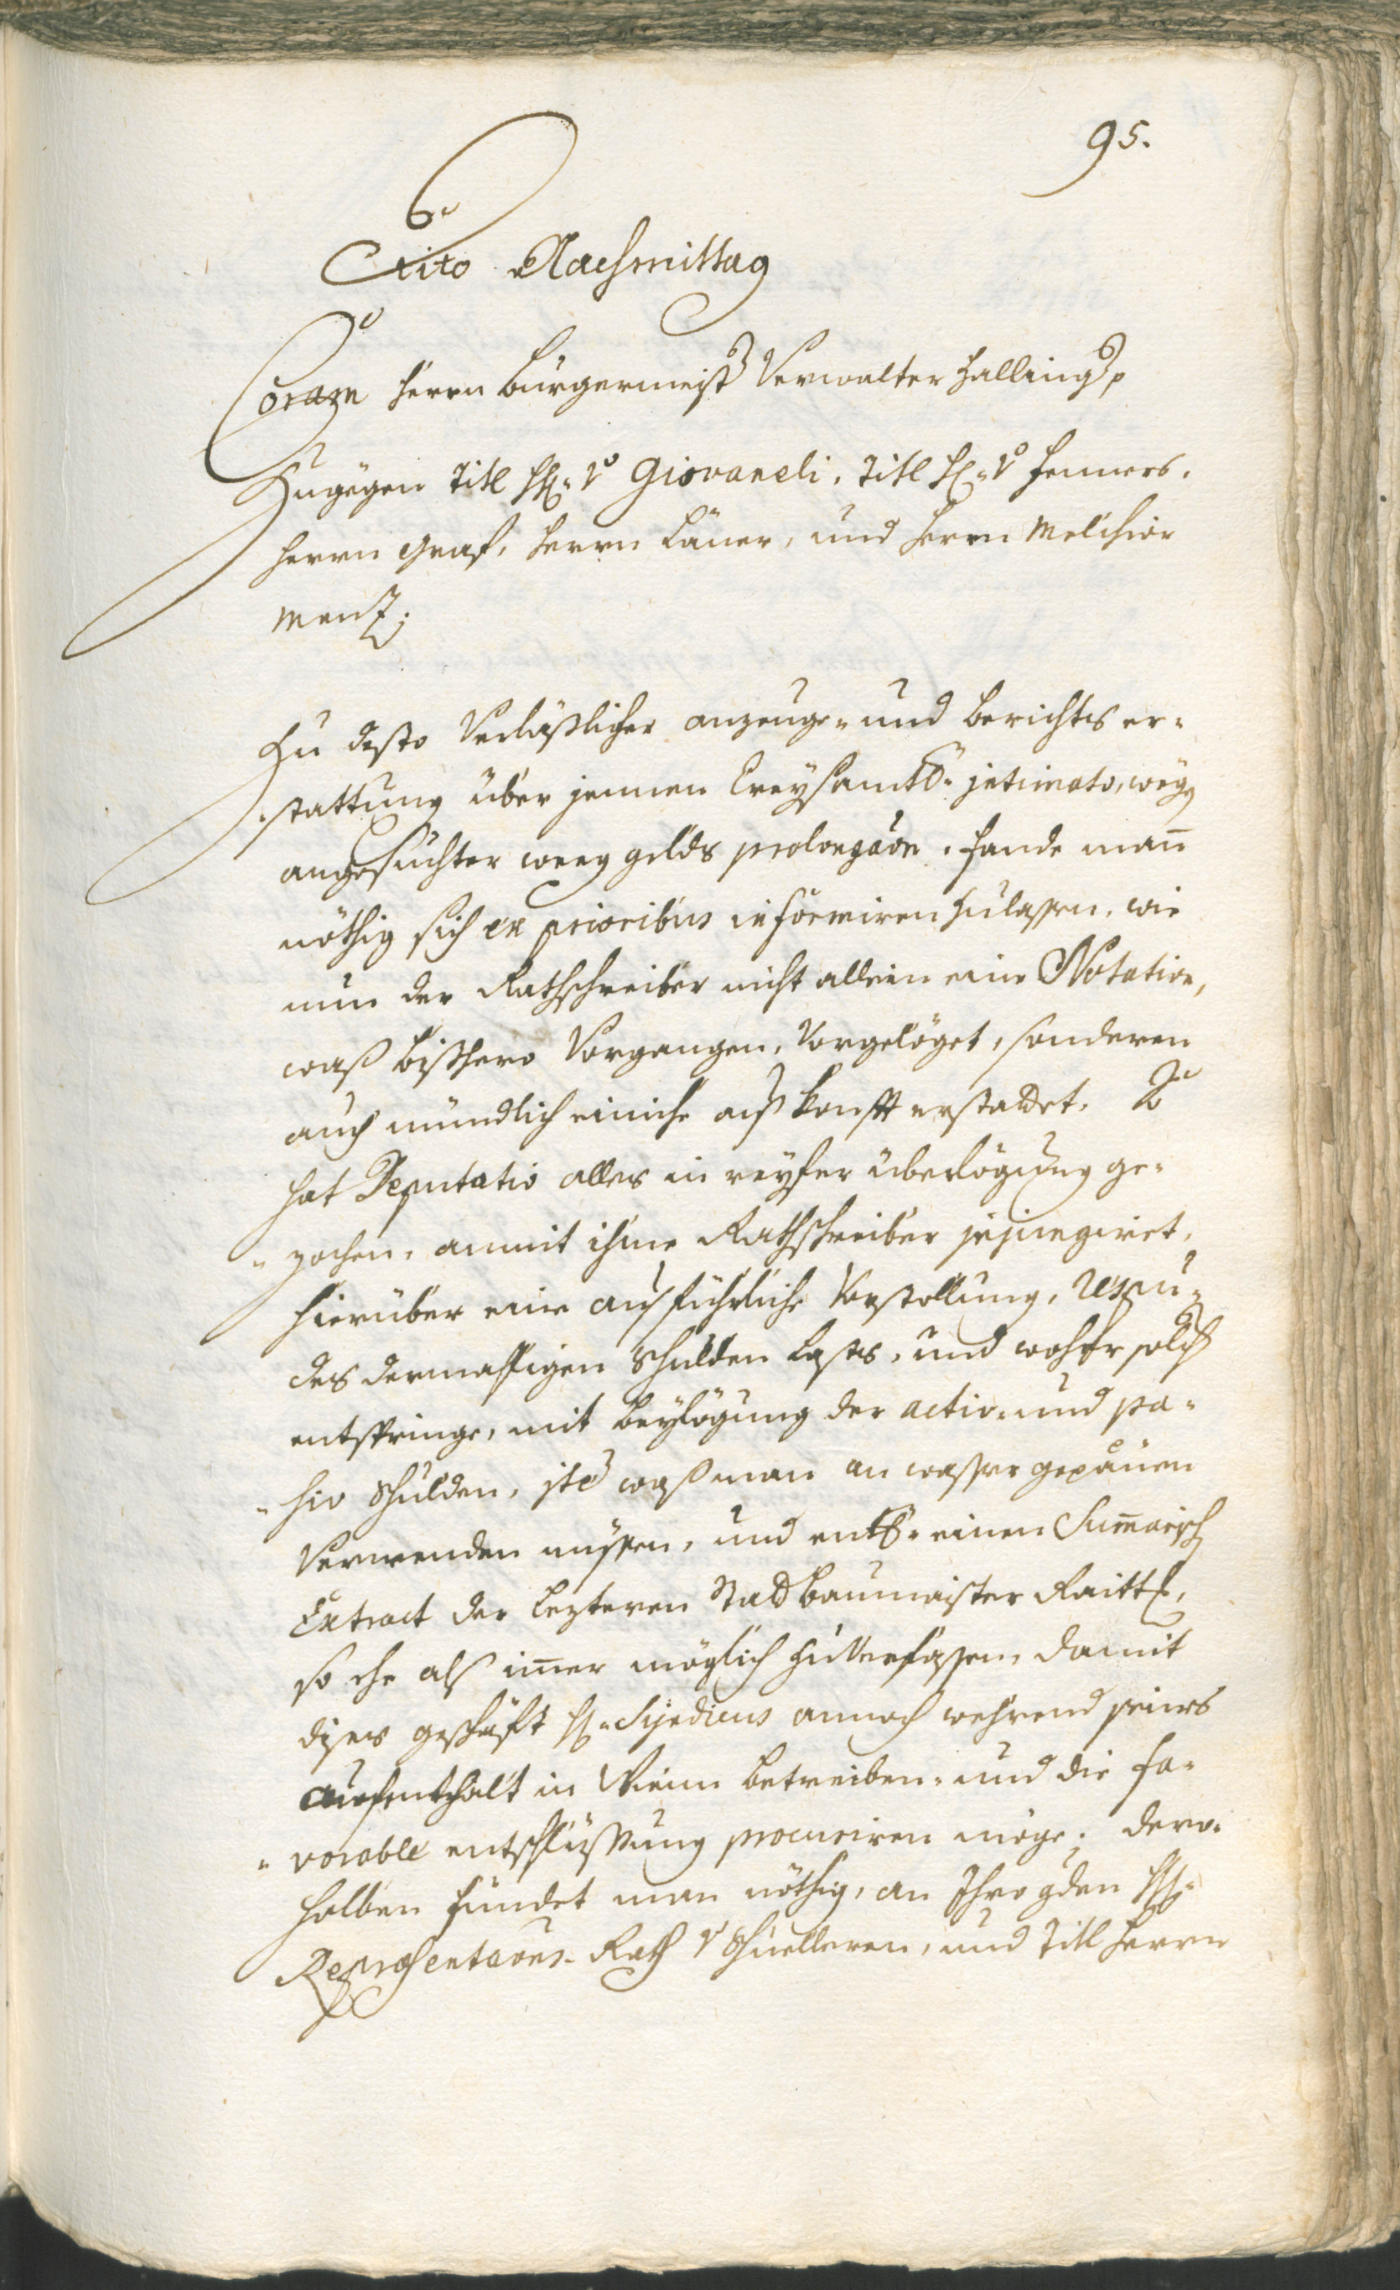 95.
Eodem dito Nachmittag
Coram herrn burgermeister Verwalter Halling p
Zugegen Titl hh: v Giovaneli, Titl h: v Fenners,
herrn Graf, herrn Läner, und herrn Melchior
Menz;
Zu desto Verläßlicher anzeüge- und berichts er-
stattung über jennen Creysambts intimato, wegen
angesuchter weeg gelds prolongaon, fande man
nöthig sich ex prioribus informiren zulassen, wie
nun der Rathschreiber nicht allein eine Notation,
waß bißhero Vorgangen, Vorgelöget, sonderen
auch mündlich einiche auskonfft erstattet. So
hat Deputatio alles in reyfer überlögung ge-
zochen, anmit ihme Rathschreiber injungiret,
hierüber eine ausführliche Vorstellung,
des dermalligen schulden lasts, und woher solch
entspringe, mit beylögung der activ- und pa-
siv schulden, ite waß man an wasser gepäuen
Verwenden müssen, und entl: einen Summarisch
Extract der lezteren Stadtbaumaister Raitt,
so ehe als immer möglich zuverfassen, damit
dises geschäft h: Syndicus annoch wehrend seines
aufenthalt in Wienn betreiben- und die fa-
vorable entschlüssung procuriren möge; dero-
halben fündet man nöthig, an Ihro gden hh:
Repræsentaons- Rath v Schuelleren, und Titl herrn